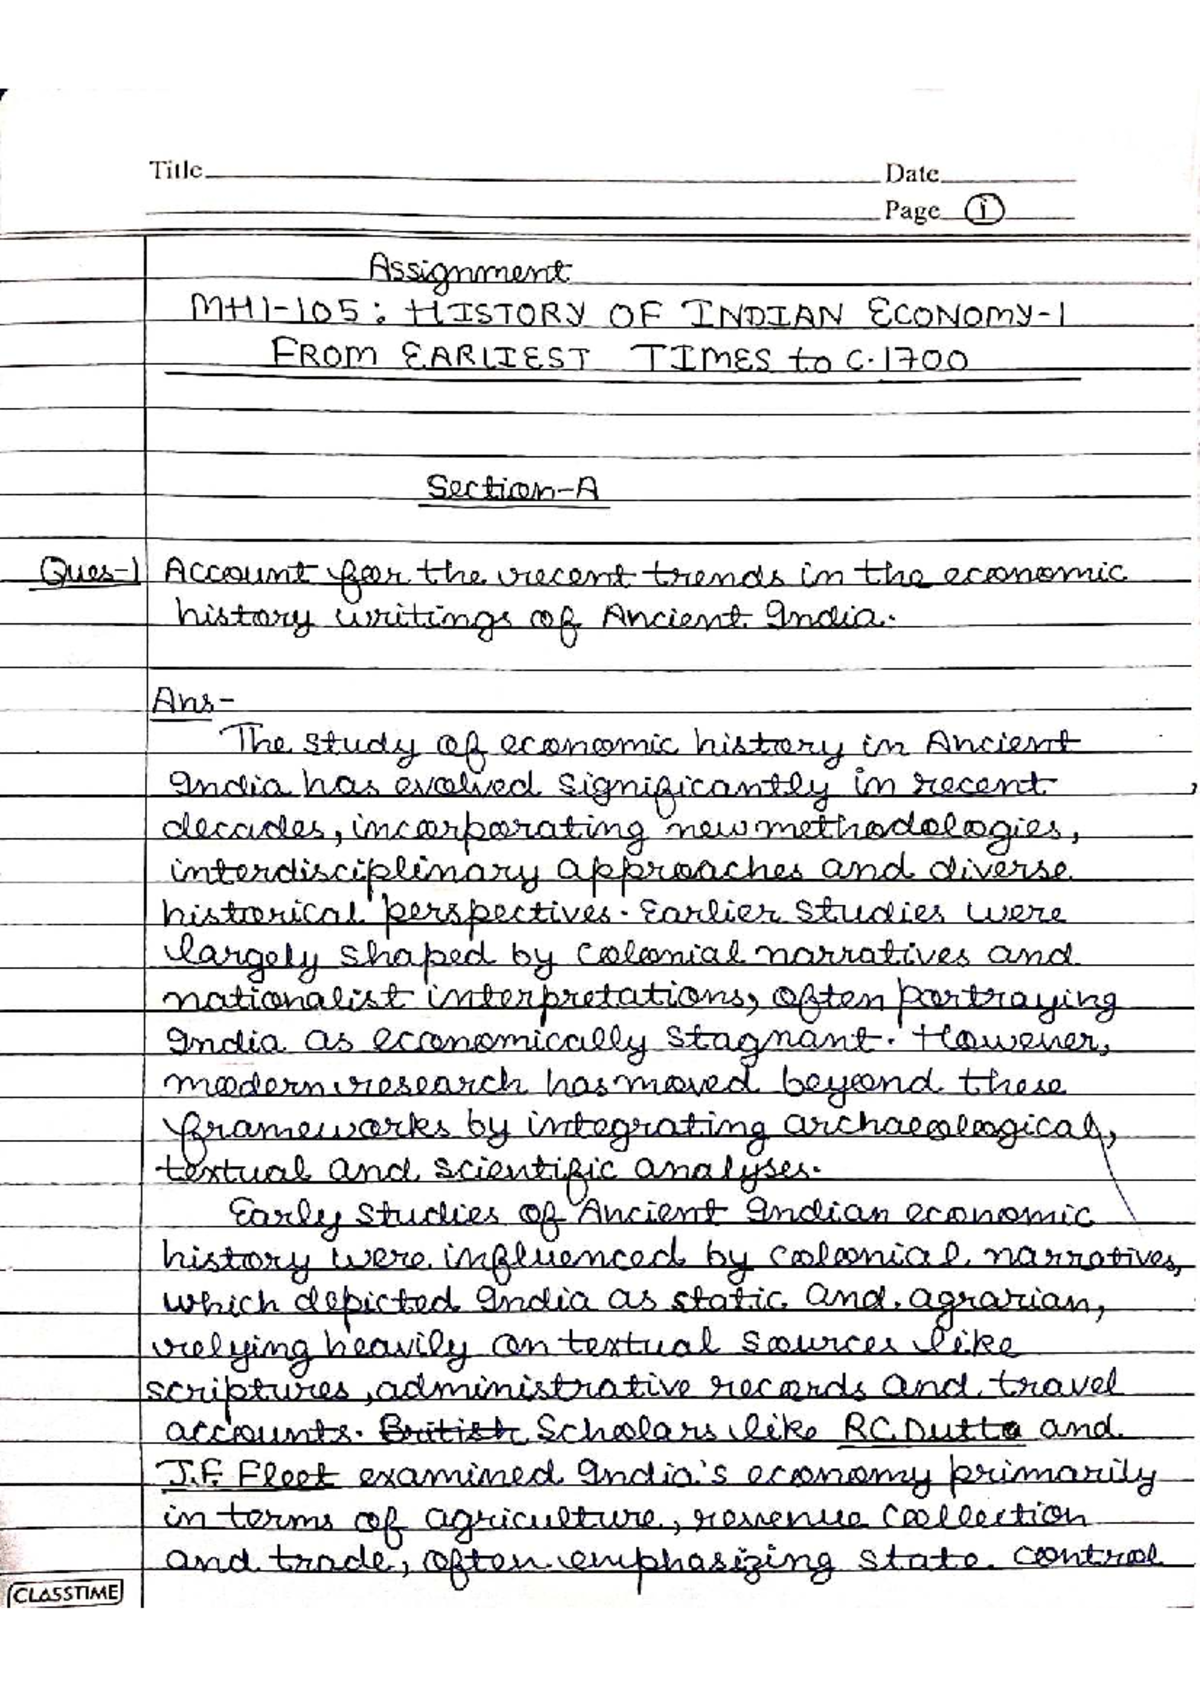 Title
Date
Page 1
Assignment
MHI-105: HISTORY OF INDIAN ECONOMY-1
FROM EARLIEST TIMES to C.1700
Section-A
Ques-1 Account for the recent trends in the economic
history writings of Ancient India.
Ans-
The study of economic history in Ancient
India has evolved significantly in recent
decades, incorporating new methodologies,
interdisciplinary approaches and diverse
historical perspectives. Earlier studies were
largely shaped by colonial narratives and
nationalist interpretations, often portraying
India as economically stagnant. However,
modern research has moved beyond these
frameworks by integrating archaeological,
textual and scientific analyses.
Early studies of Ancient Indian economic
history were influenced by colonial narratives,
which depicted India as static and agrarian,
relying heavily on textual sources like
scriptures, administrative records and travel
accounts. British Scholars like RC.Dutta and
J.F. Fleet examined India's economy primarily
in terms of agriculture, revenue collection
and trade, often emphasizing state control
CLASSTIME